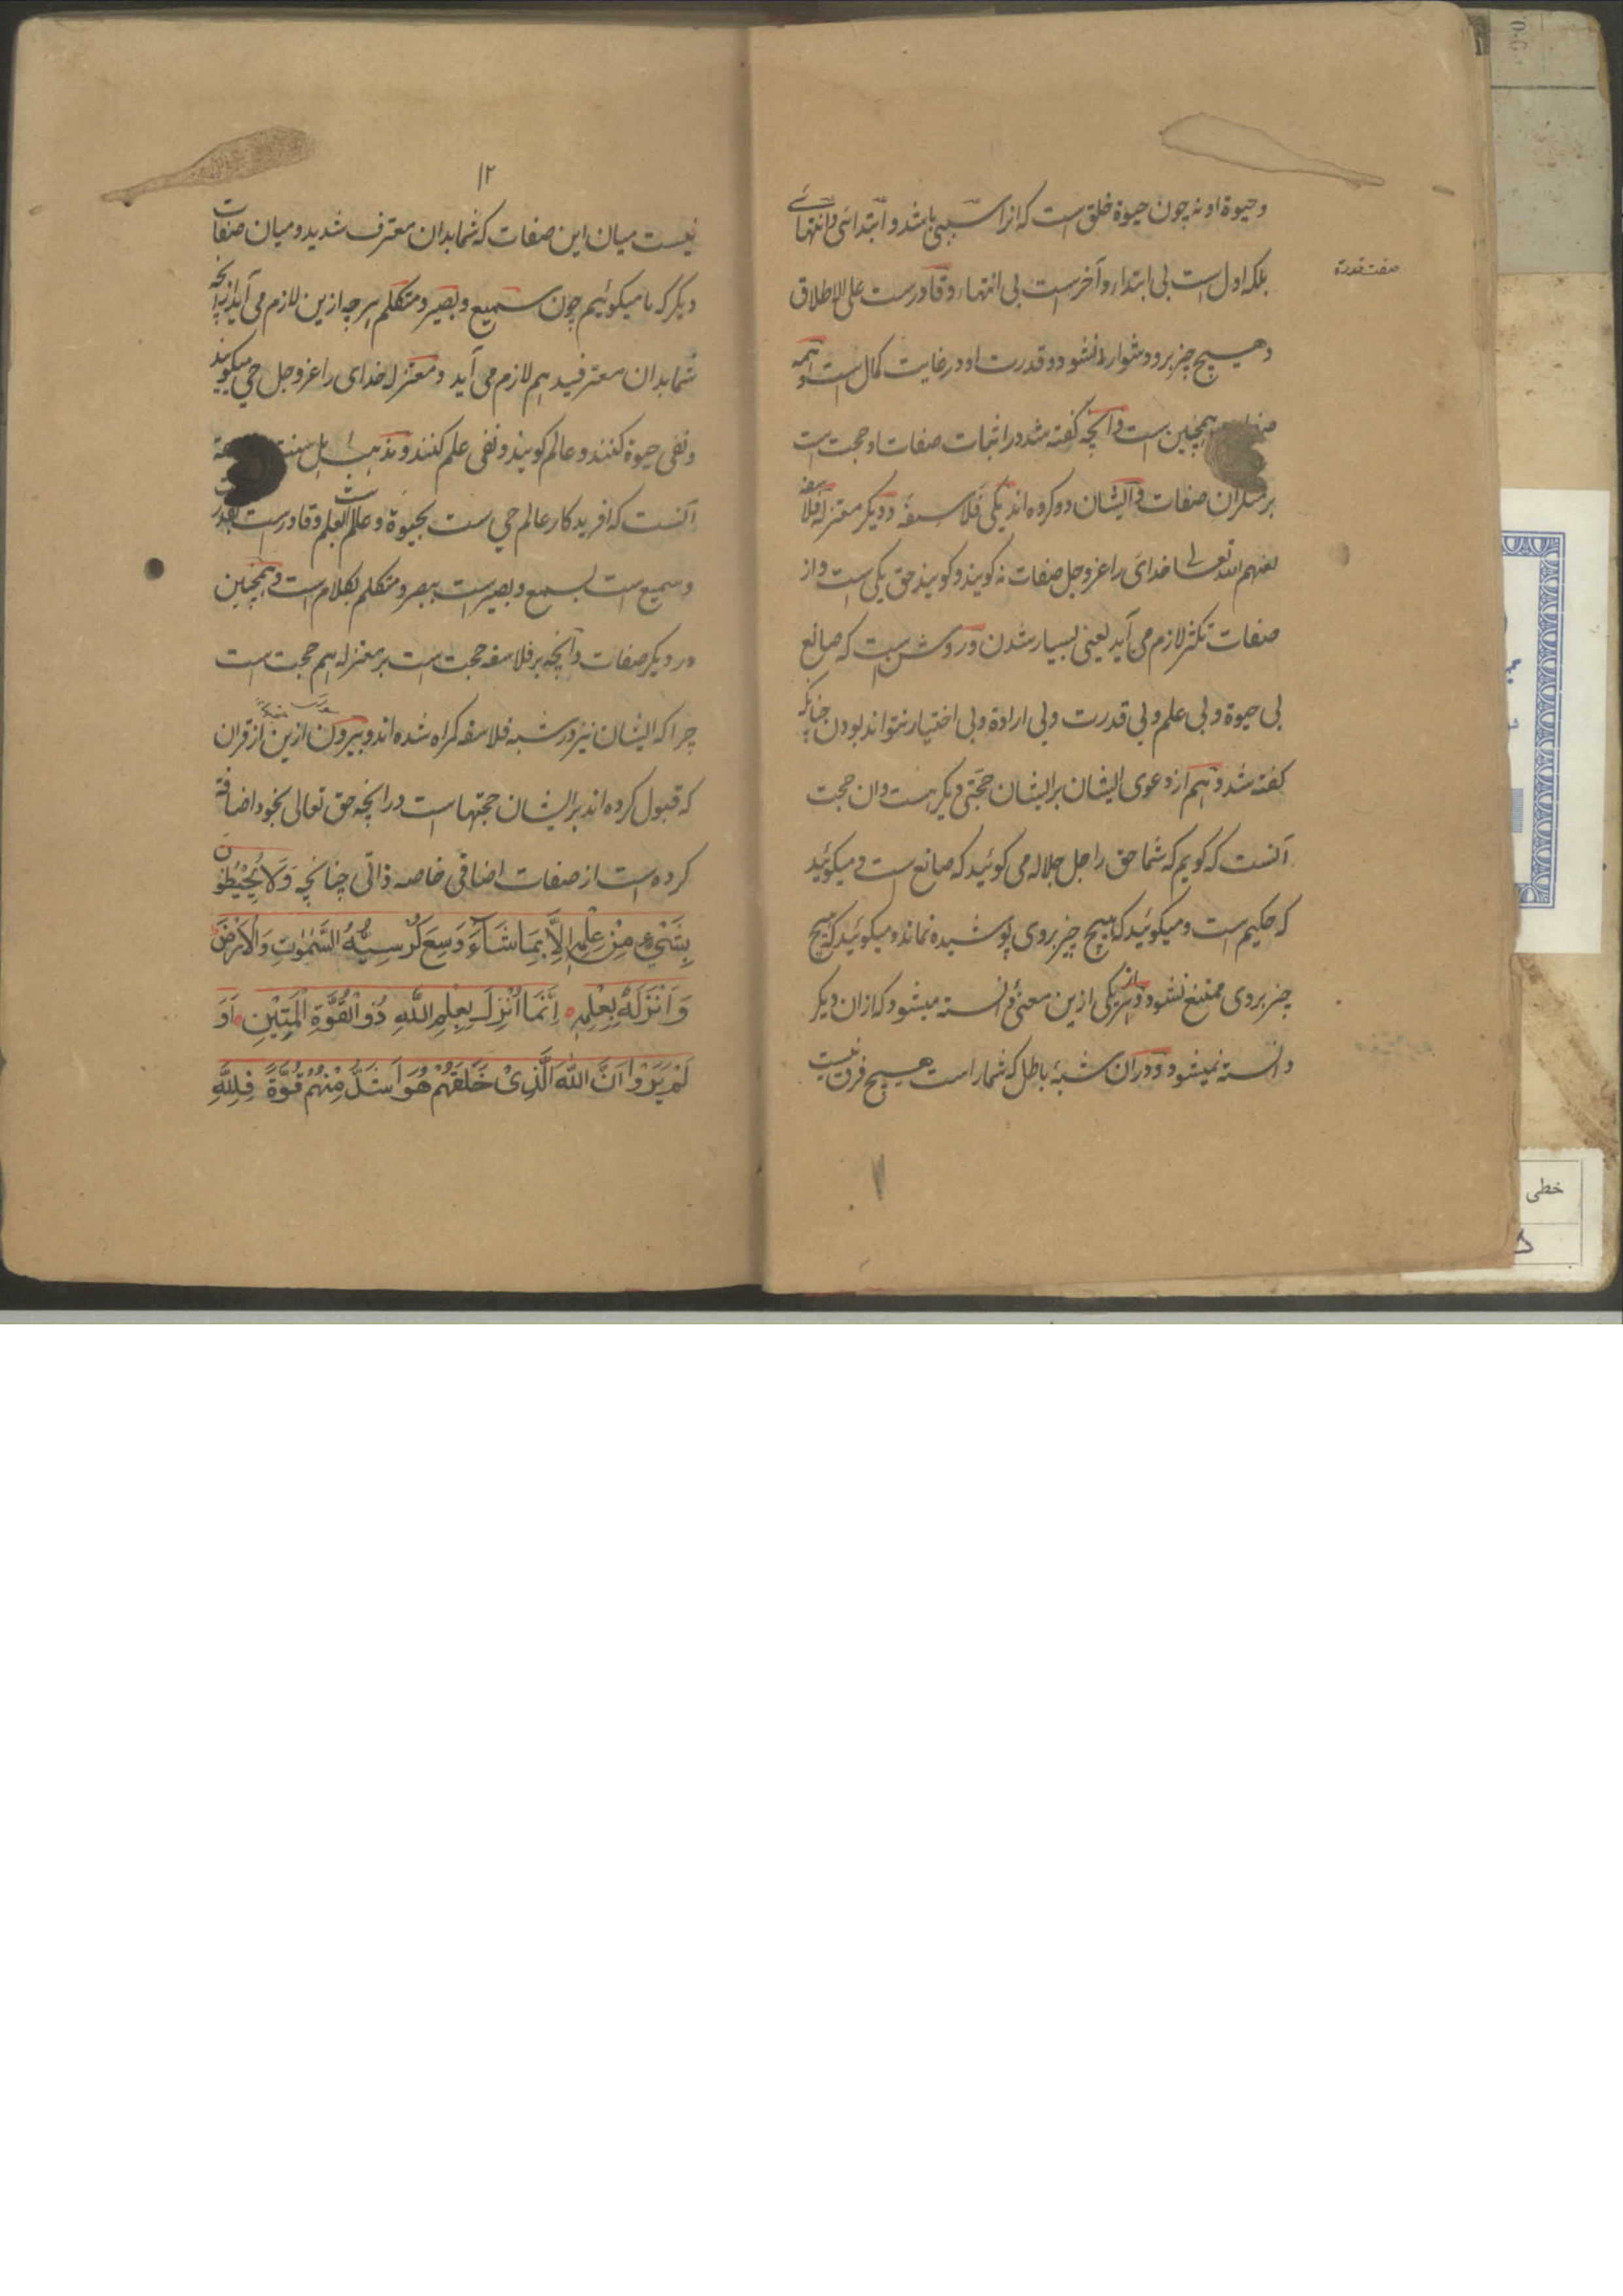 وحیوة او نه چون حیوة خلق است که انرا سببی باشد و ابتدائی و انتهائے
صفت قدرة
بلکه اول است بی ابتداء و آخرست بی انتهاء و قادرست علی الاطلاق
و هیچ چیز برو دشوار نشود و قدرت او در غایت کمال است و همه
همچنین است و آنچه گفته شد در اثبات صفات او حجت است
بر منکران صفات و ایشان دو گروه اند یکی فلاسفه و دیگر معتزله فلاسفه
لعنهم الله تعالی خدای را عزوجل صفات نه گویند و گویند حق یکی است و از
صفات تکثر لازم می آید یعنی بسیار شدن و روشن است که صانع
بی حیوة و بی علم و بی قدرت و بی ارادة و بی اختیار نتواند بودن چنانکه
گفته شد و هم از دعوی ایشان بر ایشان حجتی دیگر هست و ان حجت
آنست که گویم که شما حق را جل جلاله می گوئید که صانع است و میگوئید
که حکیم است و میگوئید که هیچ چیز بروی پوشیده نماند و میگوئید که هیچ
چیز بروی ممتنع نشود و از هر یکی ازین معنی دانسته میشود که ازان دیگر
دانسته نمیشود و دران شبهٔ باطل که شمار است هیچ فرق نیست
۱۲
نیست میان این صفات که شما بدان معترف شدید و میان صفات
دیگر که ما میگوئیم چون سمیع و بصیر و متکلم هر چه ازین لازم می آید از آنچه
شما بدان معترفید هم لازم می آید و معتزله خدای را عزوجل حی میگویند
و نفی حیوة کنند و عالم گویند و نفی علم کنند و مذهب اهل سنت
آنست که افریدگار عالم حی ست بحیوة و عالم است بعلم و قادرست بقدرت
و سمیع است بسمع و بصیر است ببصر و متکلم بکلام است و همچنین
در دیگر صفات و آنچه بر فلاسفه حجت است بر معتزله هم حجت است
چرا که ایشان نیز در شبه فلاسفه گمراه شده اند و بیرون ازین از قران
که قبول کرده اند بر ایشان حجتها است در انچه حق تعالی بخود اضافة
کرده است از صفات اضافی خاصه ذاتی چنانچه وَلَا يُحِيْطُوْنَ
بِشَيْءٍ مِنْ عِلْمِهِ اِلَّا بِمَا شَآءَ وَسِعَ كُرْسِيُّهُ السَّمٰوٰتِ وَالْاَرْضَ
وَ اَنْزَلَهٗ بِعِلْمِهِ اَنَّمَا اُنْزِلَ بِعِلْمِ اللّٰهِ ذُو الْقُوَّةِ الْمَتِيْنِ اَوَ
لَمْ يَرَوْا اَنَّ اللّٰهَ الَّذِىْ خَلَقَهُمْ هُوَ اَشَدُّ مِنْهُمْ قُوَّةً فَلِلّٰهِ
خطی